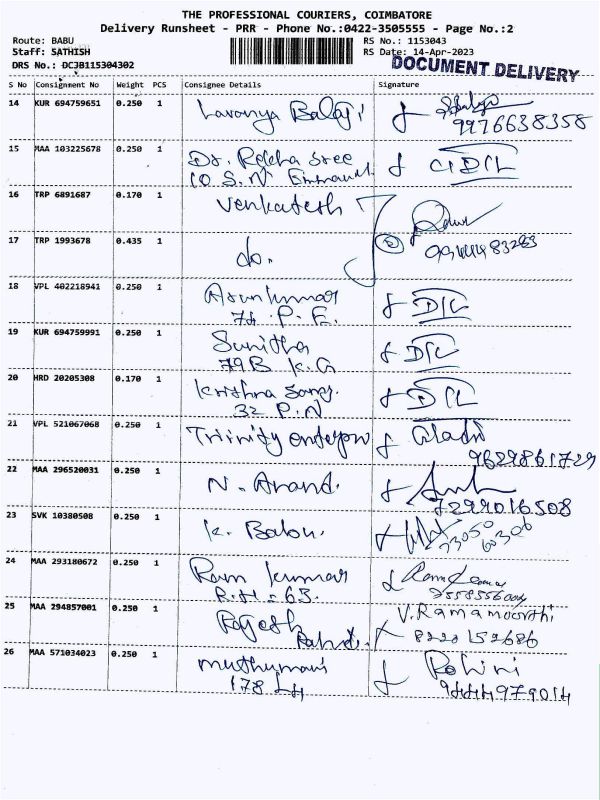 THE PROFESSIONAL COURIERS, COIMBATORE
Delivery Runsheet - PRR - Phone No.:0422-3505555 - Page No.:2
Route: BABU
Staff: SATHISH
DRS No.: DCJB115304302
RS No.: 1153043
RS Date: 14-Apr-2023
DOCUMENT DELIVERY
S No Consignment No Weight PCS Consignee Details Signature
14 KUR 694759651 0.250 1 Lavanya Balaji
9976638358
15 MAA 103225678 0.250 1 Dr. Rekha Sree
10 S.N
16 TRP 6891687 0.170 1 Venkatesh
17 TRP 1993678 0.435 1 do.
18 VPL 402218941 0.250 1 Arunkumar
74 P.E.
19 KUR 694759991 0.250 1 Sunitha
79B K.G
20 HRD 20205308 0.170 1 Krishna
32 P.N
21 VPL 521067068 0.250 1 Trinity
9629861729
22 MAA 296520031 0.250 1 N. Anand.
7299016508
23 SVK 10380508 0.250 1 K. Babu.
24 MAA 293180672 0.250 1 Ram Kumar
R.H - 63.
25 MAA 294857001 0.250 1 Rajesh V. Ramamoorthi
8220152686
26 MAA 571034023 0.250 1 Muthumani Rohini
178 LH 9444979014